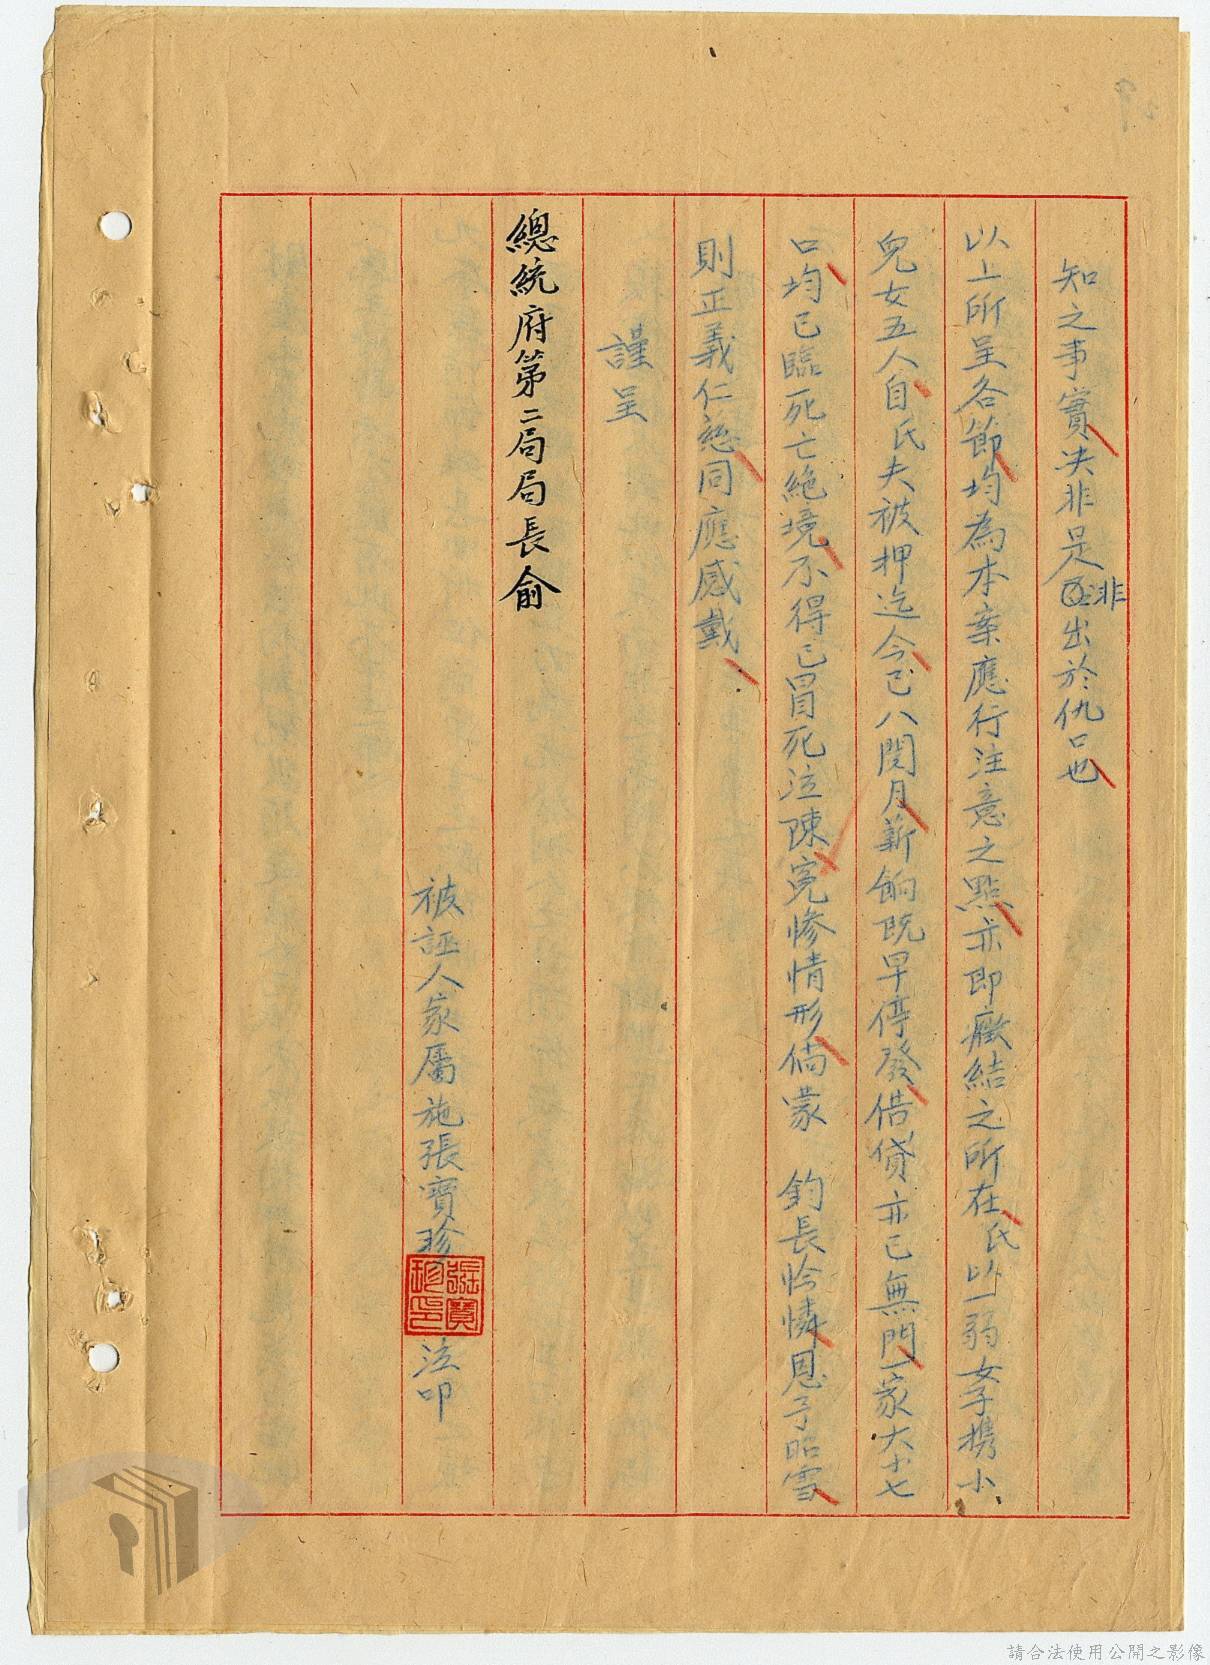 知之事實决非是非出於仇口也
以上所呈各節均為本案應行注意之點亦即癥結之所在氏以一弱女子携小
兒女五人自氏夫被押迄今已八閱月薪餉既早停發借貸亦已無門一家大小七
口均已臨死亡絕境不得已冒死泣陳寃慘情形倘蒙　鈞長怜憐恩予昭雪
則正義仁慈同應感戴
謹呈
總統府第二局局長俞
被誣人家屬施張寶珍泣叩
張寶珍印
請合法使用公開之影像